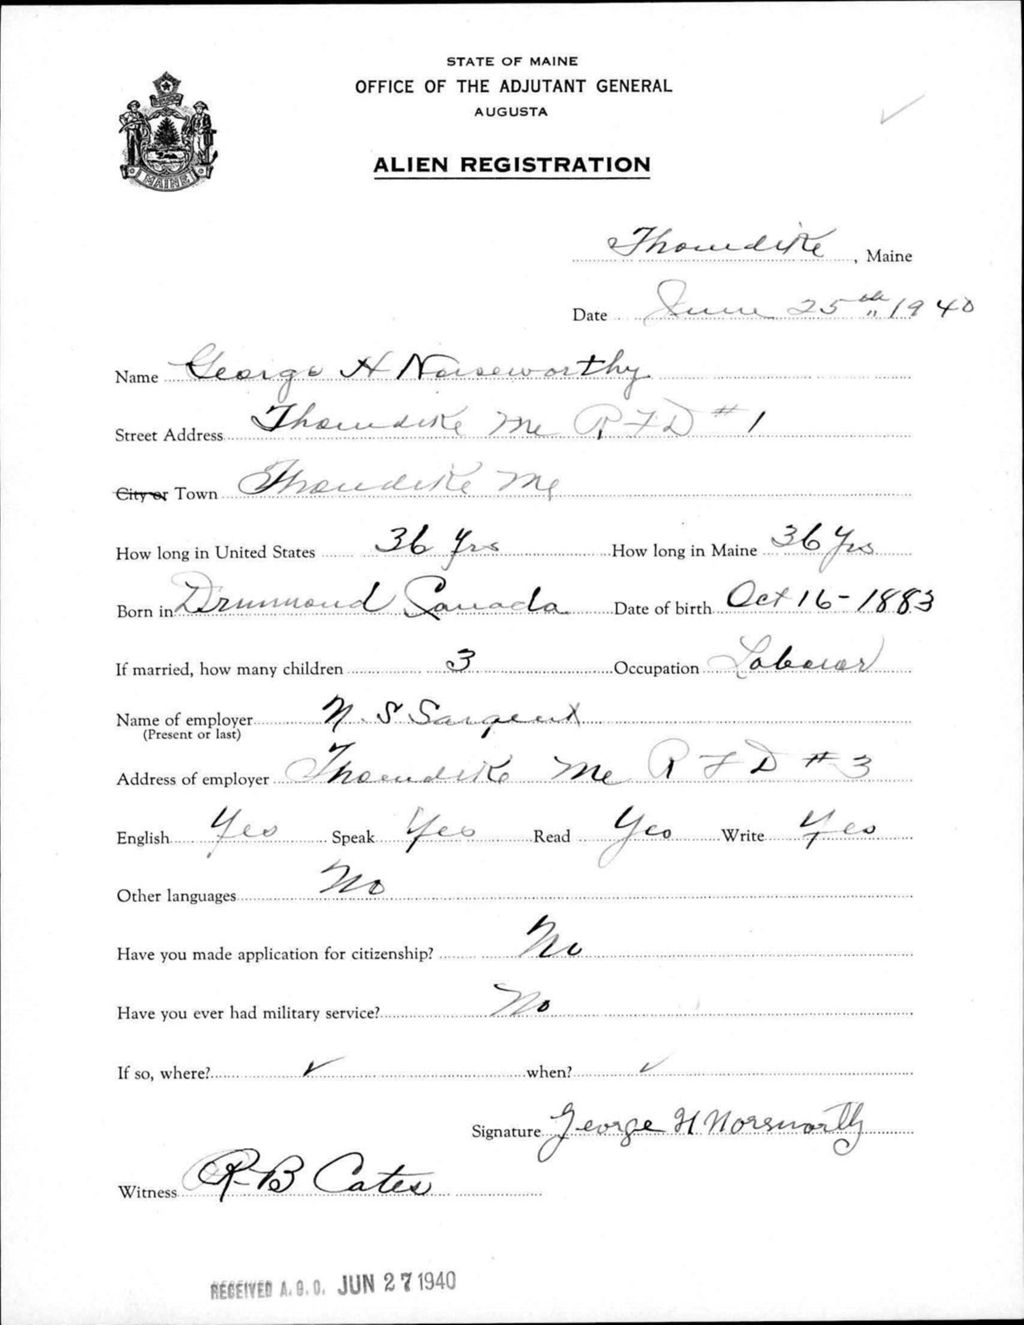 STATE OF MAINE
OFFICE OF THE ADJUTANT GENERAL
AUGUSTA
ALIEN REGISTRATION
MAINE
Thorndike, Maine
Date June 25th 1940
Name George H Noiseworthy
Street Address Thorndike Me R F D #1
City or Town Thorndike Me
How long in United States 36 Yrs How long in Maine 36 Yrs
Born in Drummond Canada Date of birth Oct 16-1883
If married, how many children 3 Occupation Laborar
Name of employer N. S Sargent
(Present or last)
Address of employer Thorndike Me R F D #3
English Yes Speak Yes Read Yes Write Yes
Other languages No
Have you made application for citizenship? No
Have you ever had military service? No
If so, where? ✓ when? ✓
Signature George H Norsworthy
Witness R B Cates
RECEIVED A.G.O. JUN 27 1940